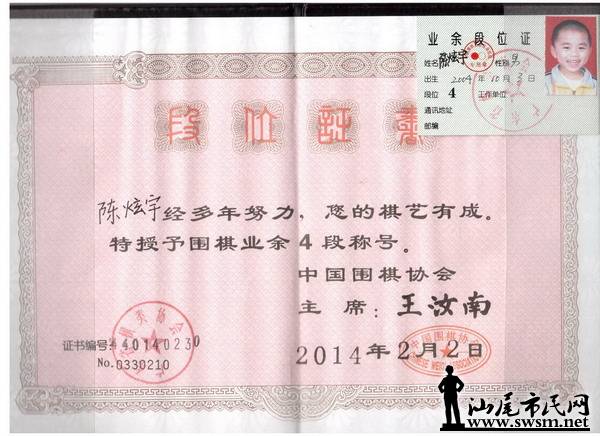 业余段位证
姓名 陈炫宇 性别 男
出生 2004年10月3日
段位 4 工作单位
通讯地址
邮编
段位证书
陈炫宇经多年努力，您的棋艺有成。
特授予围棋业余4段称号。
中国围棋协会
主席：王汝南
证书编号:440140230
No.0330210
2014年2月2日
中国围棋协会
汕尾市民网
www.swsm.net